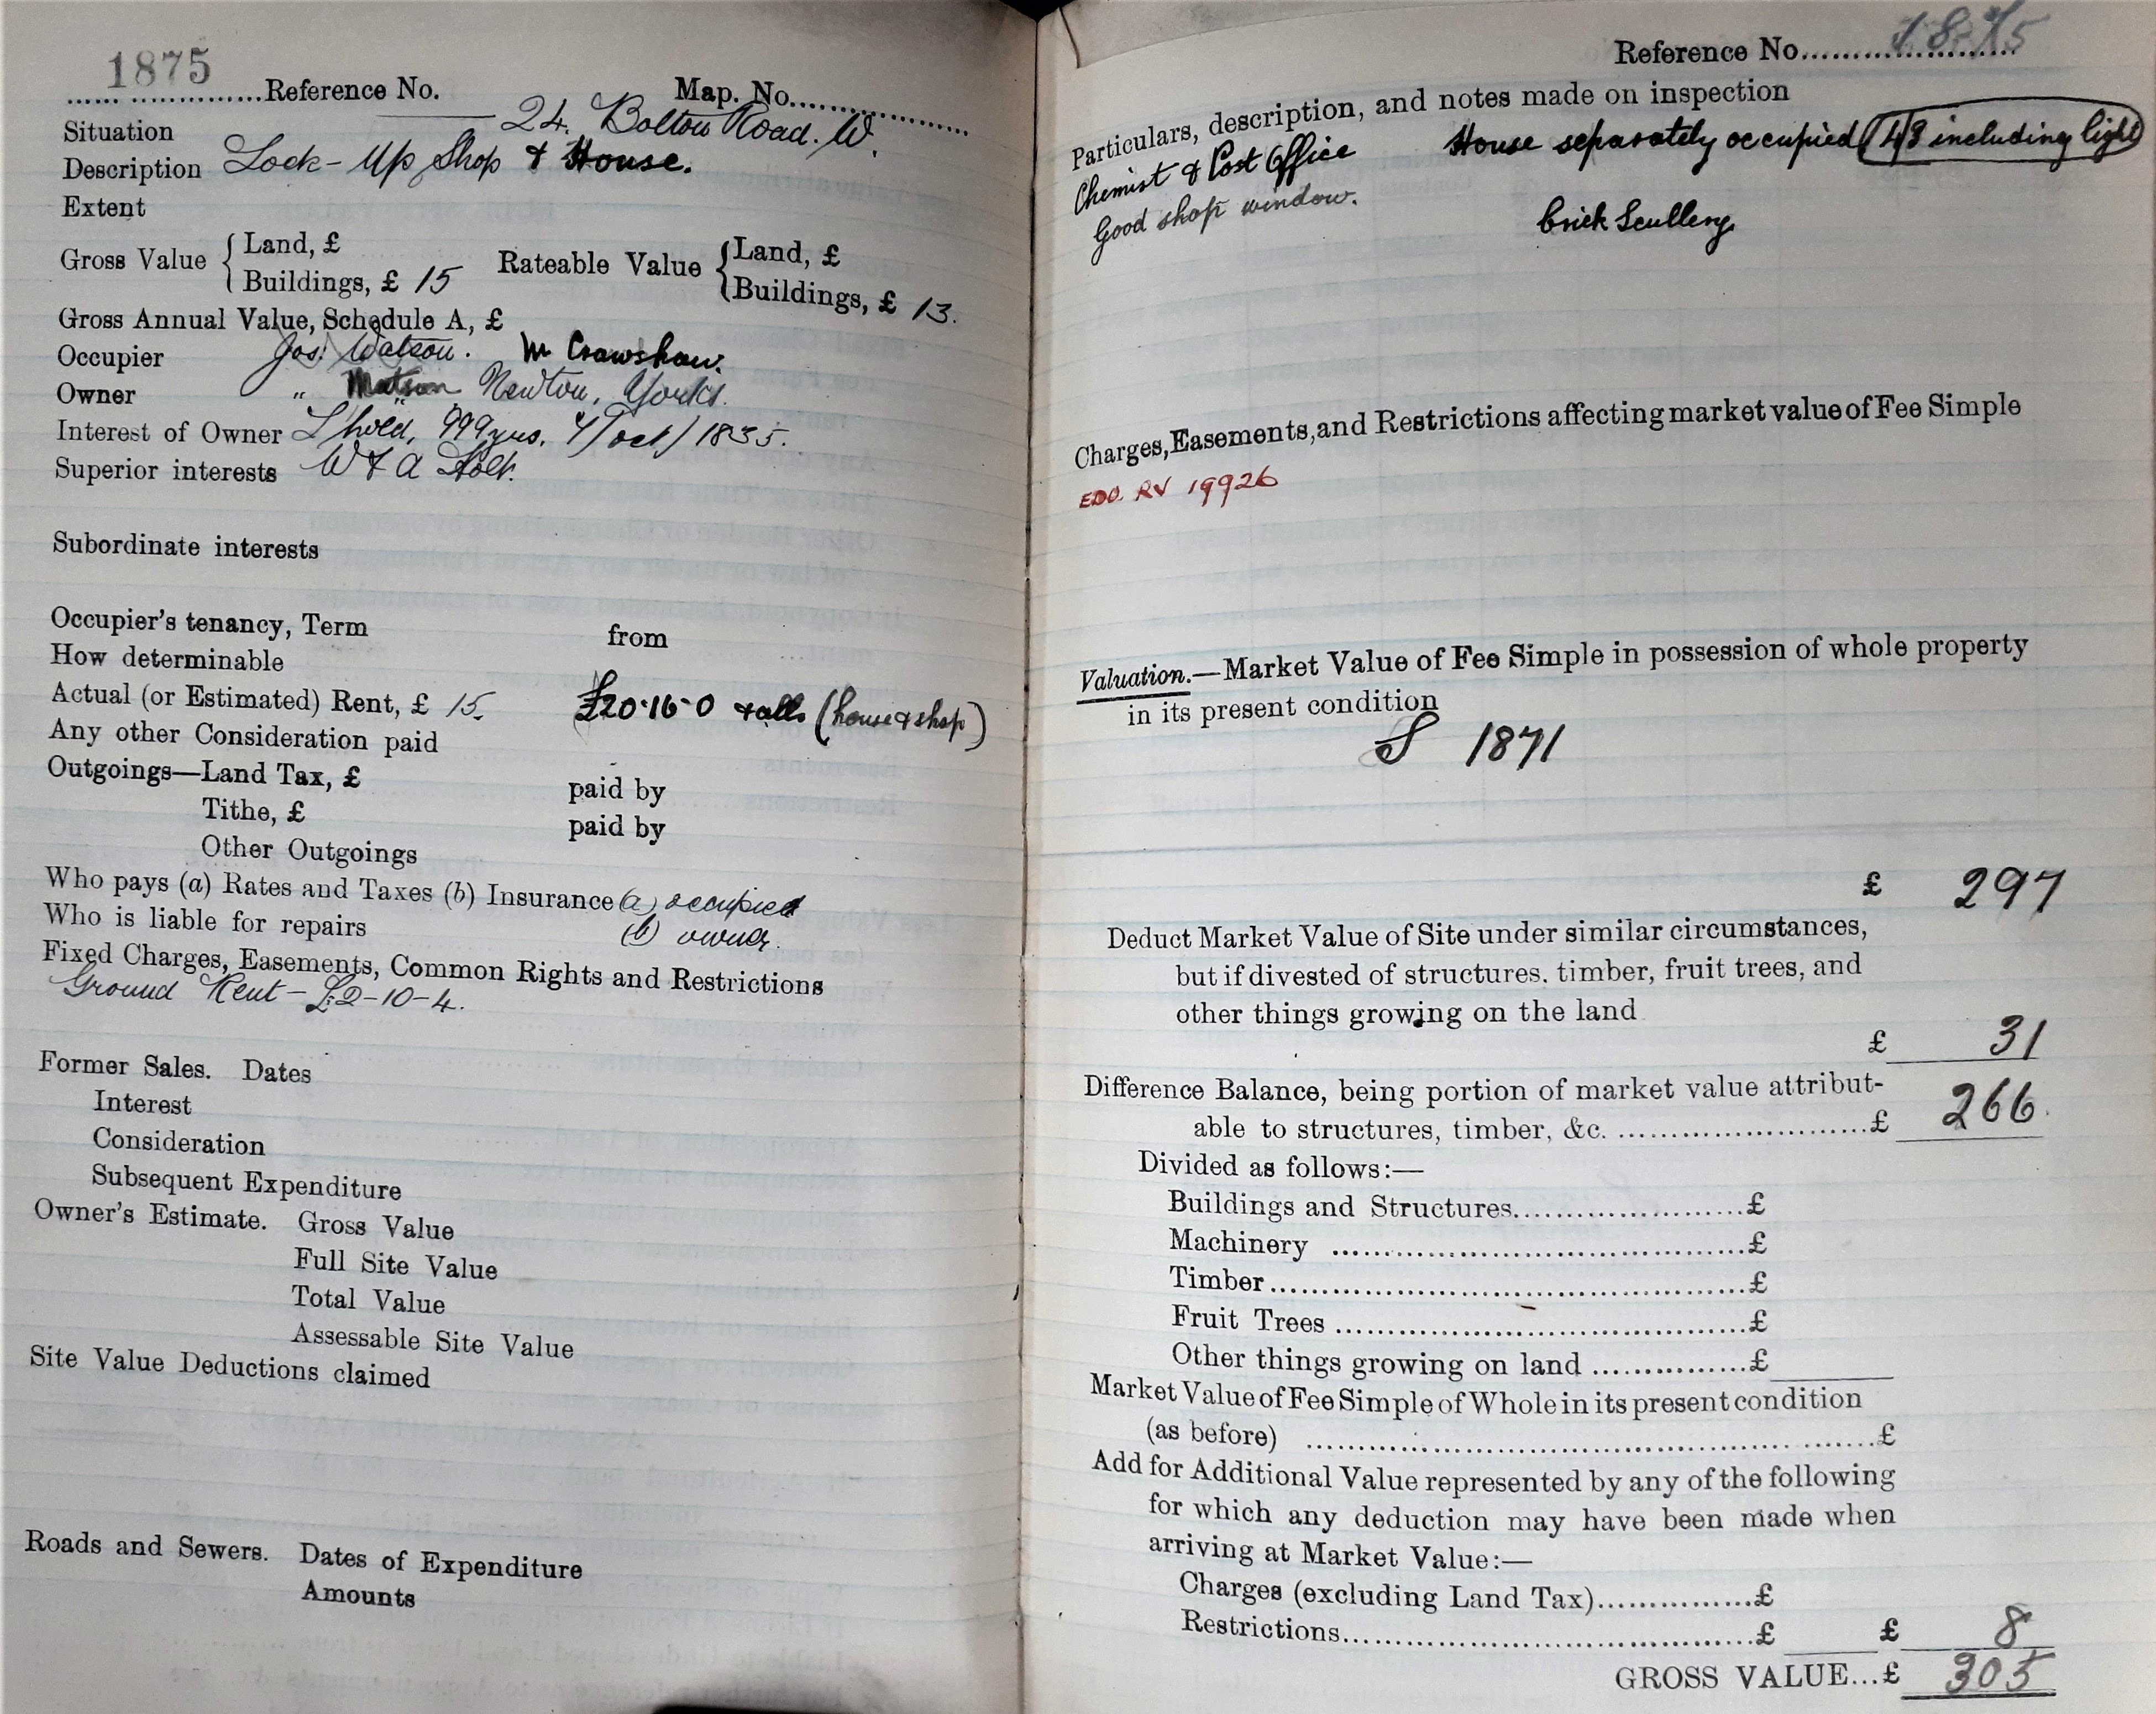 1875
Reference No. Map. No.
Situation 24. Bolton Road. W.
Description Lock-Up Shop & House.
Extent
Gross Value { Land, £ Rateable Value { Land, £
Buildings, £ 15 Buildings, £ 13.
Gross Annual Value, Schedule A, £
Occupier Jos. Watson. M Crawshaw.
Owner " Watson Newton, Yorks.
Interest of Owner L'hold, 999 yrs. 4/Oct/1835.
Superior interests W & A Holt.
Subordinate interests
Occupier's tenancy, Term from
How determinable
Actual (or Estimated) Rent, £ 15. £20-16-0 & alls (house & shop)
Any other Consideration paid
Outgoings—Land Tax, £ paid by
Tithe, £ paid by
Other Outgoings
Who pays (a) Rates and Taxes (b) Insurance (a) occupier
Who is liable for repairs (b) owner.
Fixed Charges, Easements, Common Rights and Restrictions
Ground Rent - £2-10-4.
Former Sales. Dates
Interest
Consideration
Subsequent Expenditure
Owner's Estimate. Gross Value
Full Site Value
Total Value
Assessable Site Value
Site Value Deductions claimed
Roads and Sewers. Dates of Expenditure
Amounts
Reference No. 1875
Particulars, description, and notes made on inspection
Chemist & Post Office House separately occupied 4/3 including light
Good shop window.
brick Scullery
Charges, Easements, and Restrictions affecting market value of Fee Simple
EDO. RV 19926
Valuation.—Market Value of Fee Simple in possession of whole property
in its present condition
S 1871
£ 297
Deduct Market Value of Site under similar circumstances,
but if divested of structures. timber, fruit trees, and
other things growing on the land
£ 31
Difference Balance, being portion of market value attribut-
able to structures, timber, &c. £ 266
Divided as follows:—
Buildings and Structures £
Machinery £
Timber £
Fruit Trees £
Other things growing on land £
Market Value of Fee Simple of Whole in its present condition
(as before) £
Add for Additional Value represented by any of the following
for which any deduction may have been made when
arriving at Market Value:—
Charges (excluding Land Tax) £
Restrictions £ £ 8
GROSS VALUE...£ 305